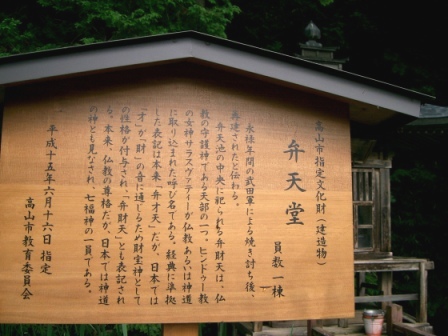 高山市指定文化財(建造物)
弁天堂
員数 一棟
永禄年間の武田軍による焼き討ち後、
再建されたと伝わる。
弁天池の中央に祀られる弁財天は、仏
教の守護神である天部の一つ。ヒンドゥー教
の女神サラスヴァティーが仏教あるいは神道
に取り込まれた呼び名である。経典に準拠
した表記は本来「弁才天」だが、日本では
「才」が「財」の音に通じるため財宝神として
の性格が付与され、「弁財天」とも表記され
る。本来、仏教の尊格だが、日本では神道
の神とも見なされ、七福神の一員である。
平成十五年六月十六日 指定
高山市教育委員会